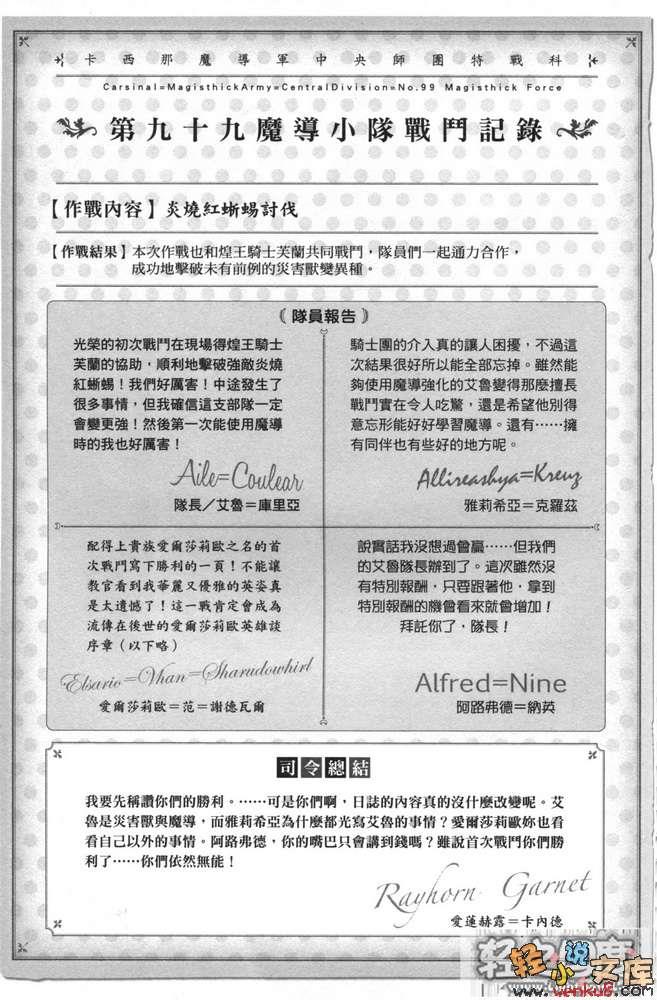 卡西那魔導軍中央師團特戰科
Carsinal=MagisthickArmy=CentralDivision=No.99 Magisthick Force
第九十九魔導小隊戰鬥記錄
【作戰內容】炎燒紅蜥蜴討伐
【作戰結果】本次作戰也和煌王騎士芙蘭共同戰鬥，隊員們一起通力合作，
成功地擊破未有前例的災害獸變異種。
（隊員報告）
光榮的初次戰鬥在現場得煌王騎士
芙蘭的協助，順利地擊破強敵炎燒
紅蜥蜴！我們好厲害！中途發生了
很多事情，但我確信這支部隊一定
會變更強！然後第一次能使用魔導
時的我也好厲害！
Aile=Coulear
隊長／艾魯＝庫里亞
騎士團的介入真的讓人困擾，不過這
次結果很好所以能全部忘掉。雖然能
夠使用魔導強化的艾魯變得那麼擅長
戰鬥實在令人吃驚，還是希望他別得
意忘形能好好學習魔導。還有……擁
有同伴也有些好的地方呢。
Allireashya=Kreuz
雅莉希亞＝克羅茲
配得上貴族愛爾莎莉歐之名的首
次戰鬥寫下勝利的一頁！不能讓
教官看到我華麗又優雅的英姿真
是太遺憾了！這一戰肯定會成為
流傳在後世的愛爾莎莉歐英雄談
序章（以下略）
Elsario=Vhan=Sharudowhirl
愛爾莎莉歐＝范＝謝德瓦爾
說實話我沒想過會贏……但我們
的艾魯隊長辦到了。這次雖然沒
有特別報酬，只要跟著他，拿到
特別報酬的機會看來就會增加！
拜託你了，隊長！
Alfred=Nine
阿路弗德＝納英
司令總結
我要先稱讚你們的勝利。……可是你們啊，日誌的內容真的沒什麼改變呢。艾
魯是災害獸與魔導，而雅莉希亞為什麼都光寫艾魯的事情？愛爾莎莉歐妳也看
看自己以外的事情。阿路弗德，你的嘴巴只會講到錢嗎？雖說首次戰鬥你們勝
利了……你們依然無能！
Rayhorn Garnet
愛蓮赫露＝卡內德
轻小说文库
www.wenku8.com